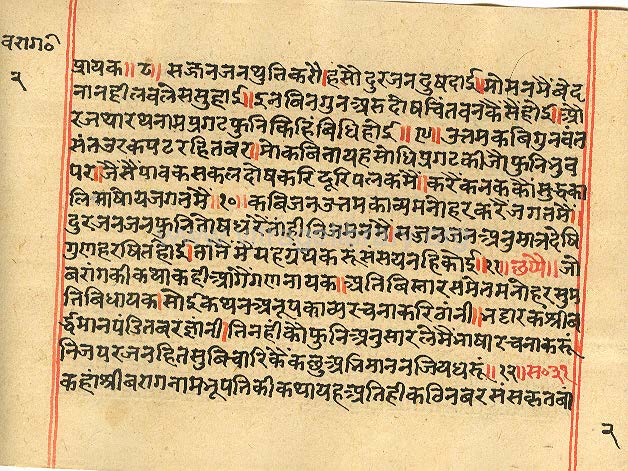 वरांग०
२
प्रायक॥८॥ सज्जनजनथुतिकरौ।हंसौ दुरजन दुषदाई।मो मन मैं षेद
नांन हीलवलेस सुहाई।इन विन गुन अरु दोष चिंतवन कैसैं होई।औ
र जथारथनाम प्रगट फुनि किहिं विधि होई॥९॥उत्तम कवि गुनवंत
संत उर कपट रहित वर।मो कविता यह सोधि प्रगट की जौ फुनि भुव
पर।जैसैं पावक सकल दोष करि दूरि पलक मैं।करै कनक कौ सुद्ध का
लिमा षोय जगत मैं॥१०॥कविजन उत्तम काव्य मनोहर करै जगत मैं।
दुरजन जन फुनि तोष धरैं नांही निज मन मैं।सज्जन जन अनुमात्र देषि
गुण हरषित होई।तातैं मैं यह ग्रंथ करूं संसय नहि कोई॥११॥छप्पै॥जो
वरांग की कथा कही आगैं गणनायक।अति विस्तार समेत मनोहर सुम
तिविधायक।सोई कथन अनूप काव्य रचना करि गांनी।भट्टारक श्रीव
र्द्धमान पंडित वर ज्ञांनी।तिनही कौ फुनि अनुसार ले मैं भाषा रचना करूं
निज पर जन हित सुविचारि कैं कछु अभिमान न जिय धरूं॥१२॥स०३१
कहां श्री वरांग नाम भूपति की कथा यह अति ही कठिन वर संस्कृत बां
२